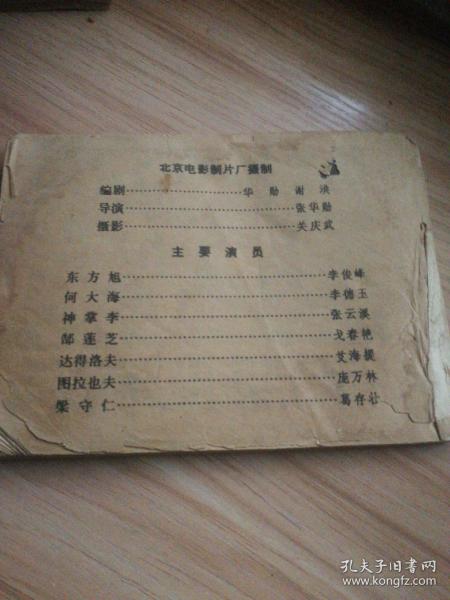 北京电影制片厂摄制
编剧……………………华勋 谢洪
导演……………………张华勋
摄影……………………关庆武
主要演员
东方旭……………………李俊峰
何大海……………………李德玉
神掌李……………………张云溪
郜莲芝……………………戈春艳
达得洛夫……………………艾海提
图拉也夫……………………庞万林
梁守仁……………………葛存壮
孔夫子旧书网
www.kongfz.com